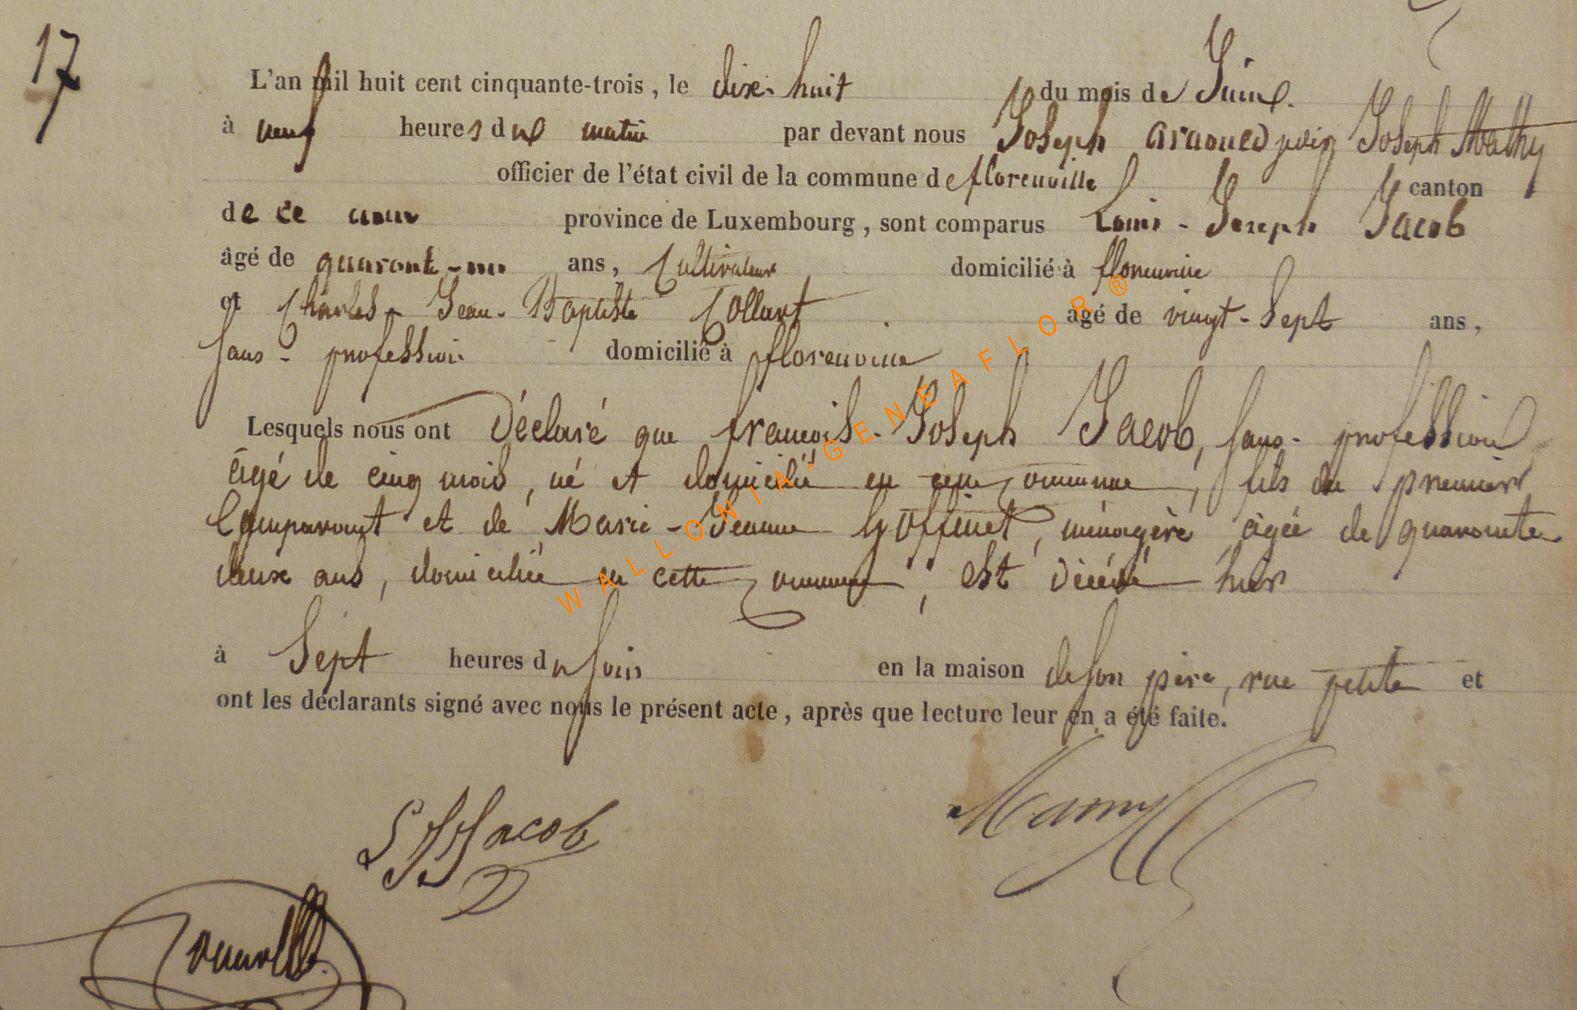 17
L'an mil huit cent cinquante-trois, le dix-huit du mois de Juin.
à neuf heures du matin par devant nous Joseph Joseph Mathy
officier de l'état civil de la commune de florenville canton
de ce nom province de Luxembourg, sont comparus Louis-Joseph Jacob
âgé de quarante-un ans, Cultivateur domicilié à florenville
et Charles-Jean-Baptiste Collart agé de vingt-Sept ans,
sans-profession domicilié à florenville
Lesquels nous ont Déclaré que françois-Joseph Jacob, sans-profession,
âgé de cinq mois, né et domicilié en cette commune, fils du premier
Comparant et de Marie-Jeanne Goffinet, ménagère âgée de quarante
deux ans, domiciliée en cette commune, est décédé hier
à Sept heures du soir en la maison de son père, rue petite et
ont les déclarants signé avec nous le présent acte, après que lecture leur en a été faite.
LJJacob
WALLONIA-GENEAFLOR®